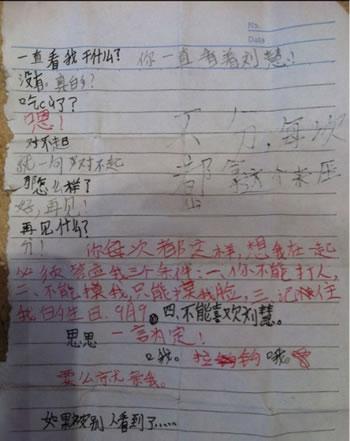 No.
Date
一直看我干什么? 你一直看着刘慧!
没有,真白?
吃吗了?
嗯!
不分,每次
对不起
就一句对不起
都拿这个来压
那怎么样了
好,再见!
再见什么?
分! 你每次都这样,想我在一起
必须答应我三个条件:一你不能打人,
二、不能摸我,只能摸我脸,三、记住
我日生日.9月9。四.不能喜欢刘慧。
思思 一言为定!
哦。拉钩 哦。
要么你亲我。
如果被别人看到了.....